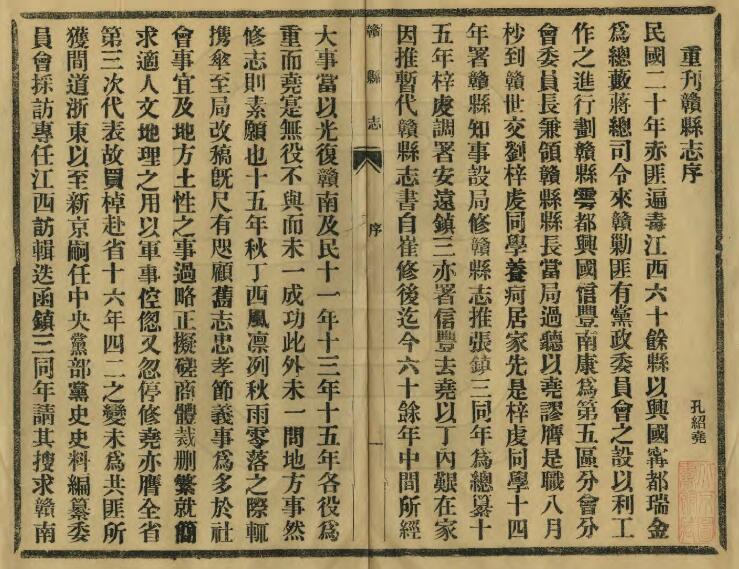 重刋贛縣志序
孔紹堯
民國二十年赤匪遍毒江西六十餘縣以興國甯都瑞金
爲總藪蔣總司令來贛勦匪有黨政委員會之設以利工
作之進行劃贛縣雩都興國信豐南康爲第五區分會分
會委員長兼領贛縣縣長當局過聽以堯謬膺是職八月
杪到贛世交劉梓虔同學養疴居家先是梓虔同學十四
年署贛縣知事設局修贛縣志推張鎮三同年爲總纂十
五年梓虔調署安遠鎮三亦署信豐去堯以丁內艱在家
因推暫代贛縣志書自崔修後迄今六十餘年中間所經
贛縣志
序
一
大事當以光復贛南及民十一年十三年十五年各役爲
重而堯寔無役不與而未一成功此外未一問地方事然
修志則素願也十五年秋丁西風凛冽秋雨零落之際輒
携傘至局改稿旣尺有咫顧舊志忠孝節義事爲多於社
會事宜及地方土性之事過略正擬磋商體裁删繁就簡
求適人文地理之用以軍事倥偬又忽停修堯亦膺全省
第三次代表故買棹赴省十六年四二之變未爲共匪所
獲間道浙東以至新京嗣任中央黨部黨史史料編纂委
員會採訪專任江西訪輯迭函鎮三同年請其搜求贛南